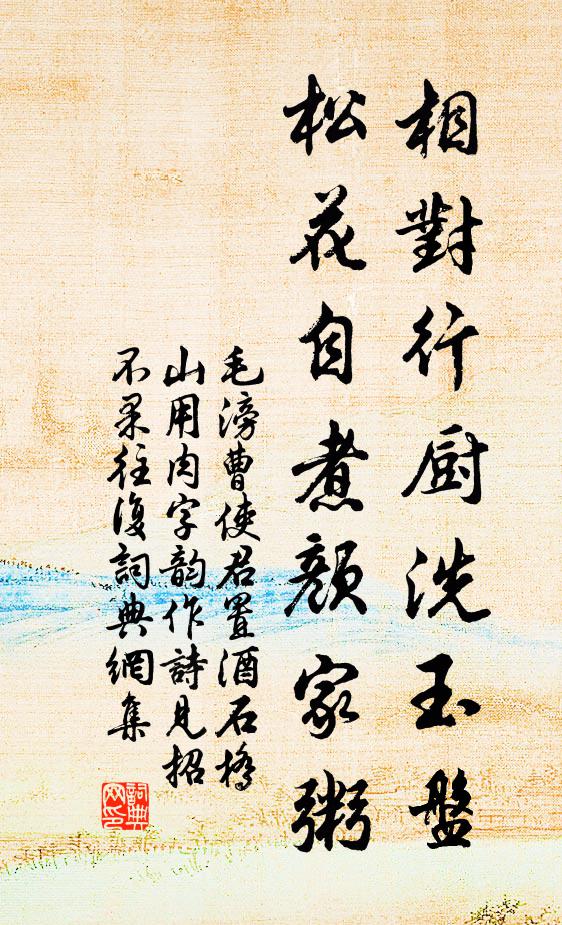 相對行厨洗玉盤
松花自煮顏家粥
毛滂曹使君置酒石橋
山用肉字韵作詩見招
不果往復詞典網集
詞典
网印